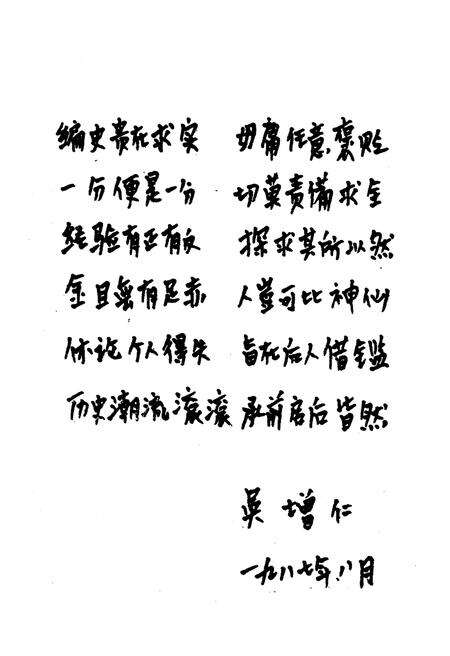 编史贵在求实 切庸任意褒贬
一分便是一分 切莫责备求全
经验有正有反 探求其所以然
金且无有足赤 人岂可比神仙
休论个人得失 旨在后人借鉴
历史潮流滚滚 承前启后皆然
吴增仁
一九八七年八月